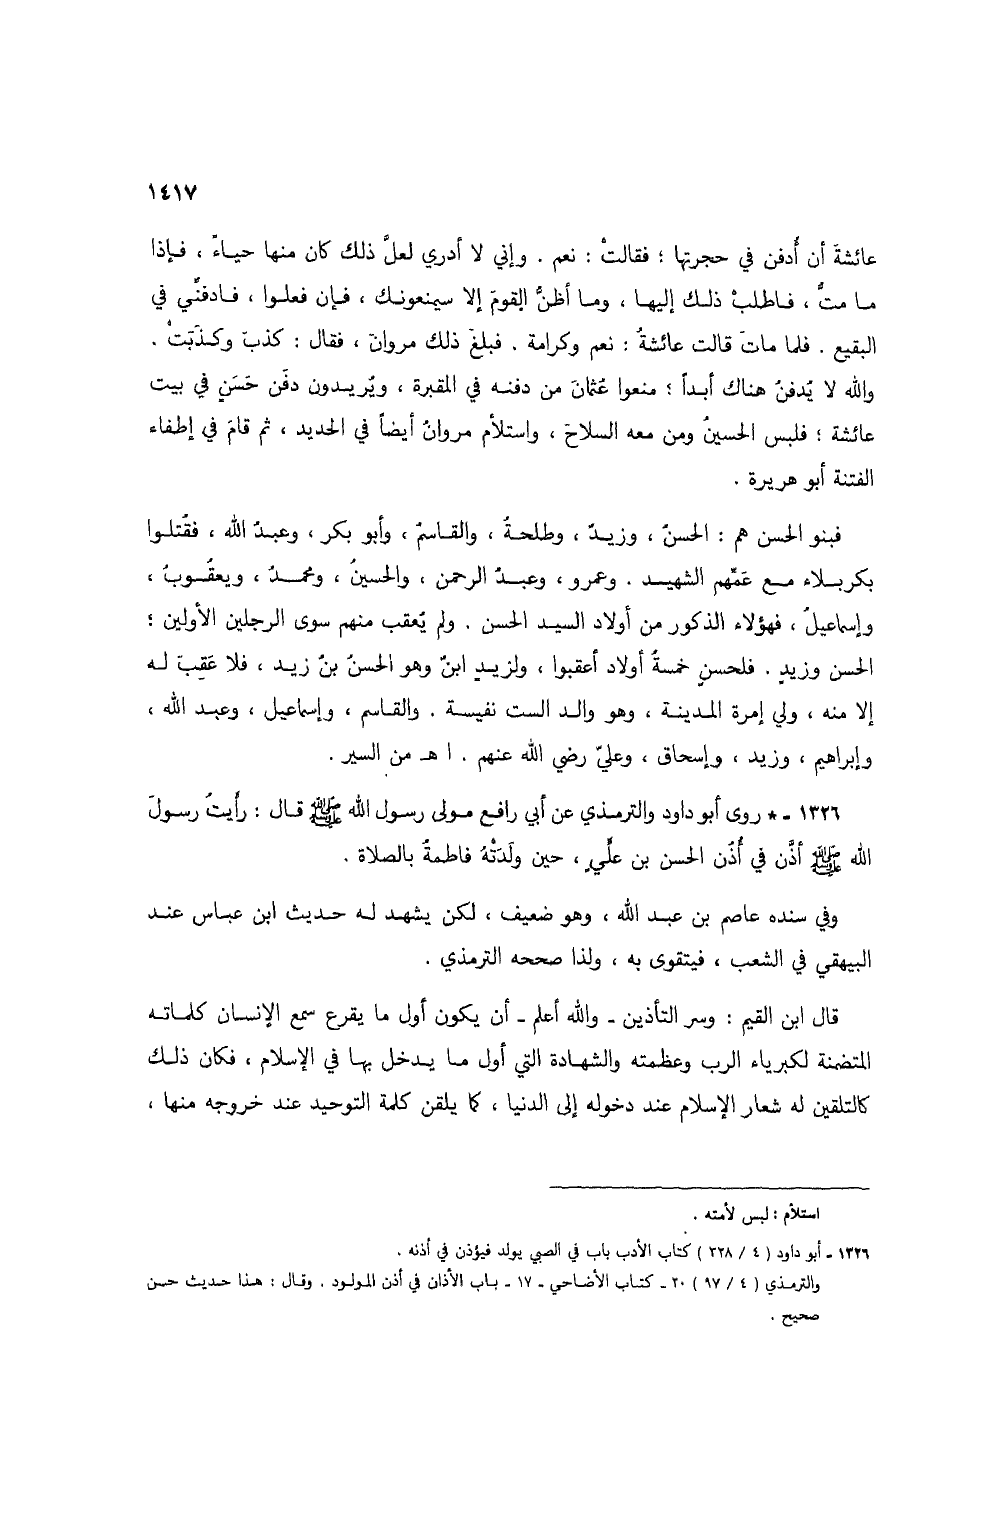 ١٤١٧
عائشةَ أن أُدفن في حجرتها ؛ فقالتْ : نعم . وإني لا أدري لعلَّ ذلك كان منها حياءً ، فإذا
ما متُّ ، فاطلبْ ذلك إليها ، وما أظنُّ القومَ إلا سيمنعونك ، فإن فعلوا ، فادفنِّي في
البقيع . فلما ماتَ قالت عائشةُ : نعم وكرامة . فبلغَ ذلك مروانَ ، فقال : كذبَ وكذَبَتْ .
والله لا يُدفنُ هناك أبداً ؛ منعوا عُثمانَ من دفنه في المقبرة ، ويُريدون دفَن حَسَنٍ في بيت
عائشة ؛ فلبس الحسينُ ومن معه السلاحَ ، واستلأم مروانُ أيضاً في الحديد ، ثم قامَ في إطفاء
الفتنة أبو هريرة .
فبنو الحسن هم : الحسنُ ، وزيدٌ ، وطلحةُ ، والقاسمُ ، وأبو بكر ، وعبدُ الله ، فقُتلوا
بكربلاء مع عَمِّهم الشهيد . وعمرو ، وعبدُ الرحمن ، والحسينُ ، ومحمدُ ، ويعقُوبُ ،
وإسماعيلُ ، فهؤلاء الذكور من أولاد السيد الحسن . ولم يُعقب منهم سوى الرجلين الأولين ؛
الحسن وزيدٍ . فلحسنٍ خمسةُ أولاد أعقبوا ، ولزيدٍ ابنٌ وهو الحسنُ بنُ زيد ، فلا عَقِبَ له
إلا منه ، ولي إمرة المدينة ، وهو والد الست نفيسة . والقاسم ، وإسماعيل ، وعبد الله ،
وإبراهيم ، وزيد ، وإسحاق ، وعليّ رضي الله عنهم . ا هـ من السير .
١٣٢٦ - * روى أبو داود والترمذي عن أبي رافع مولى رسول الله ﷺ قال : رأَيتُ رسولَ
الله ﷺ أذَّن في أُذُن الحسن بن عليٍّ ، حين ولَدَتْهُ فاطمةُ بالصلاة .
وفي سنده عاصم بن عبد الله ، وهو ضعيف ، لكن يشهد له حديث ابن عباس عند
البيهقي في الشعب ، فيتقوى به ، ولذا صححه الترمذي .
قال ابن القيم : وسر التأذين - والله أعلم - أن يكون أول ما يقرع سمع الإنسان كلماته
المتضمنة لكبرياء الرب وعظمته والشهادة التي أول ما يدخل بها في الإسلام ، فكان ذلك
كالتلقين له شعار الإسلام عند دخوله إلى الدنيا ، كما يلقن كلمة التوحيد عند خروجه منها ،
استلأم : لبس لأمته .
١٣٢٦ - أبو داود ( ٤ / ٣٢٨ ) كتاب الأدب باب في الصبي يولد فيؤذن في أذنه .
والترمذي ( ٤ / ٩٧ ) ٢٠ - كتاب الأضاحي - ١٧ - باب الأذان في أذن المولود . وقال : هذا حديث حسن
صحيح .